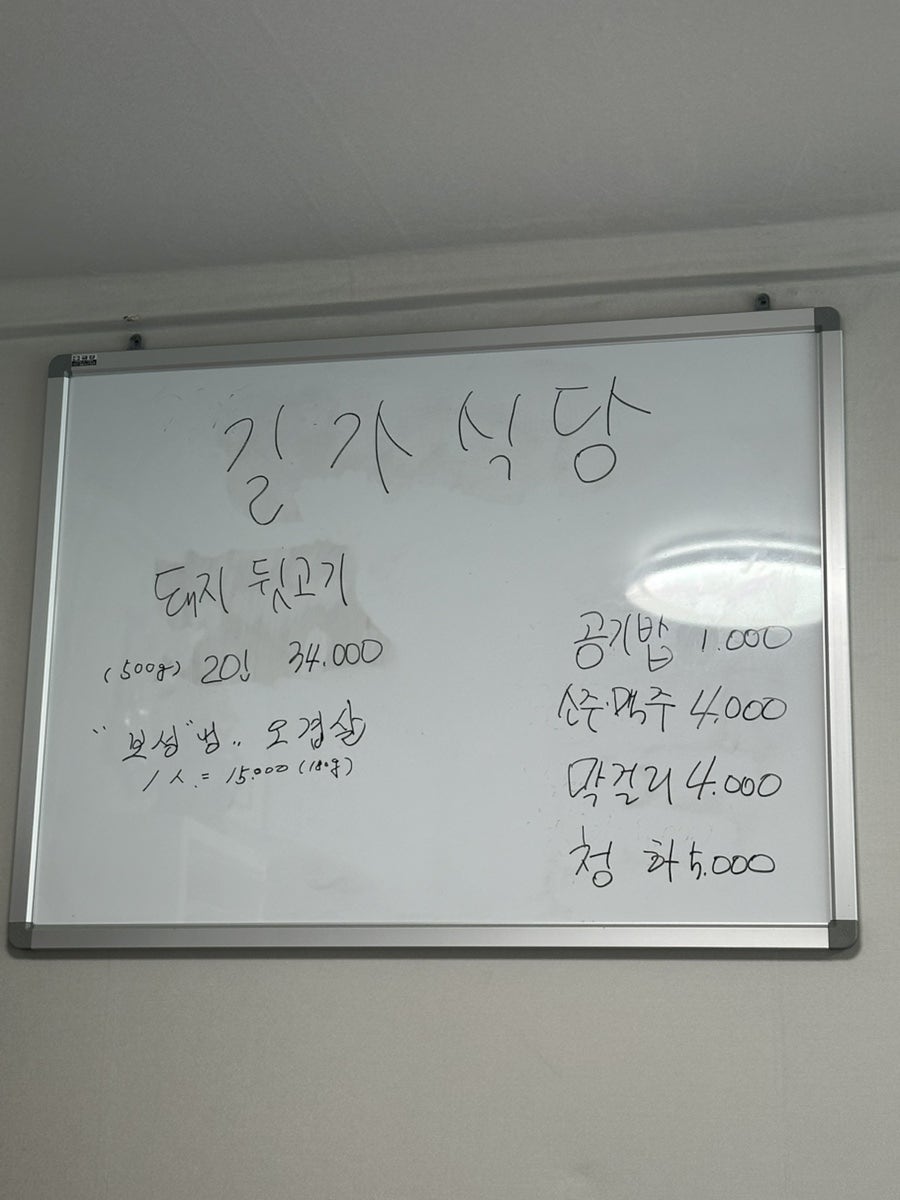 길가식당
돼지 뒷고기
(500g) 2인 34.000
"보성"녕.. 오겹살
1人.= 15.000 (180g)
공기밥 1.000
소주·맥주 4.000
막걸리 4.000
청하 5.000